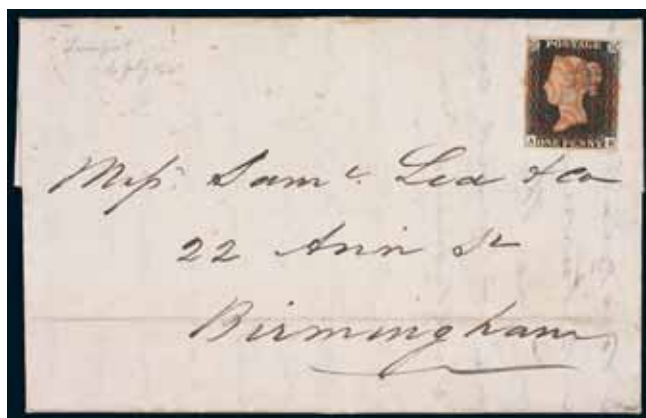 POSTAGE
ONE PENNY
Mess. Saml. Lea & Co
22 Ann St
Birmingham